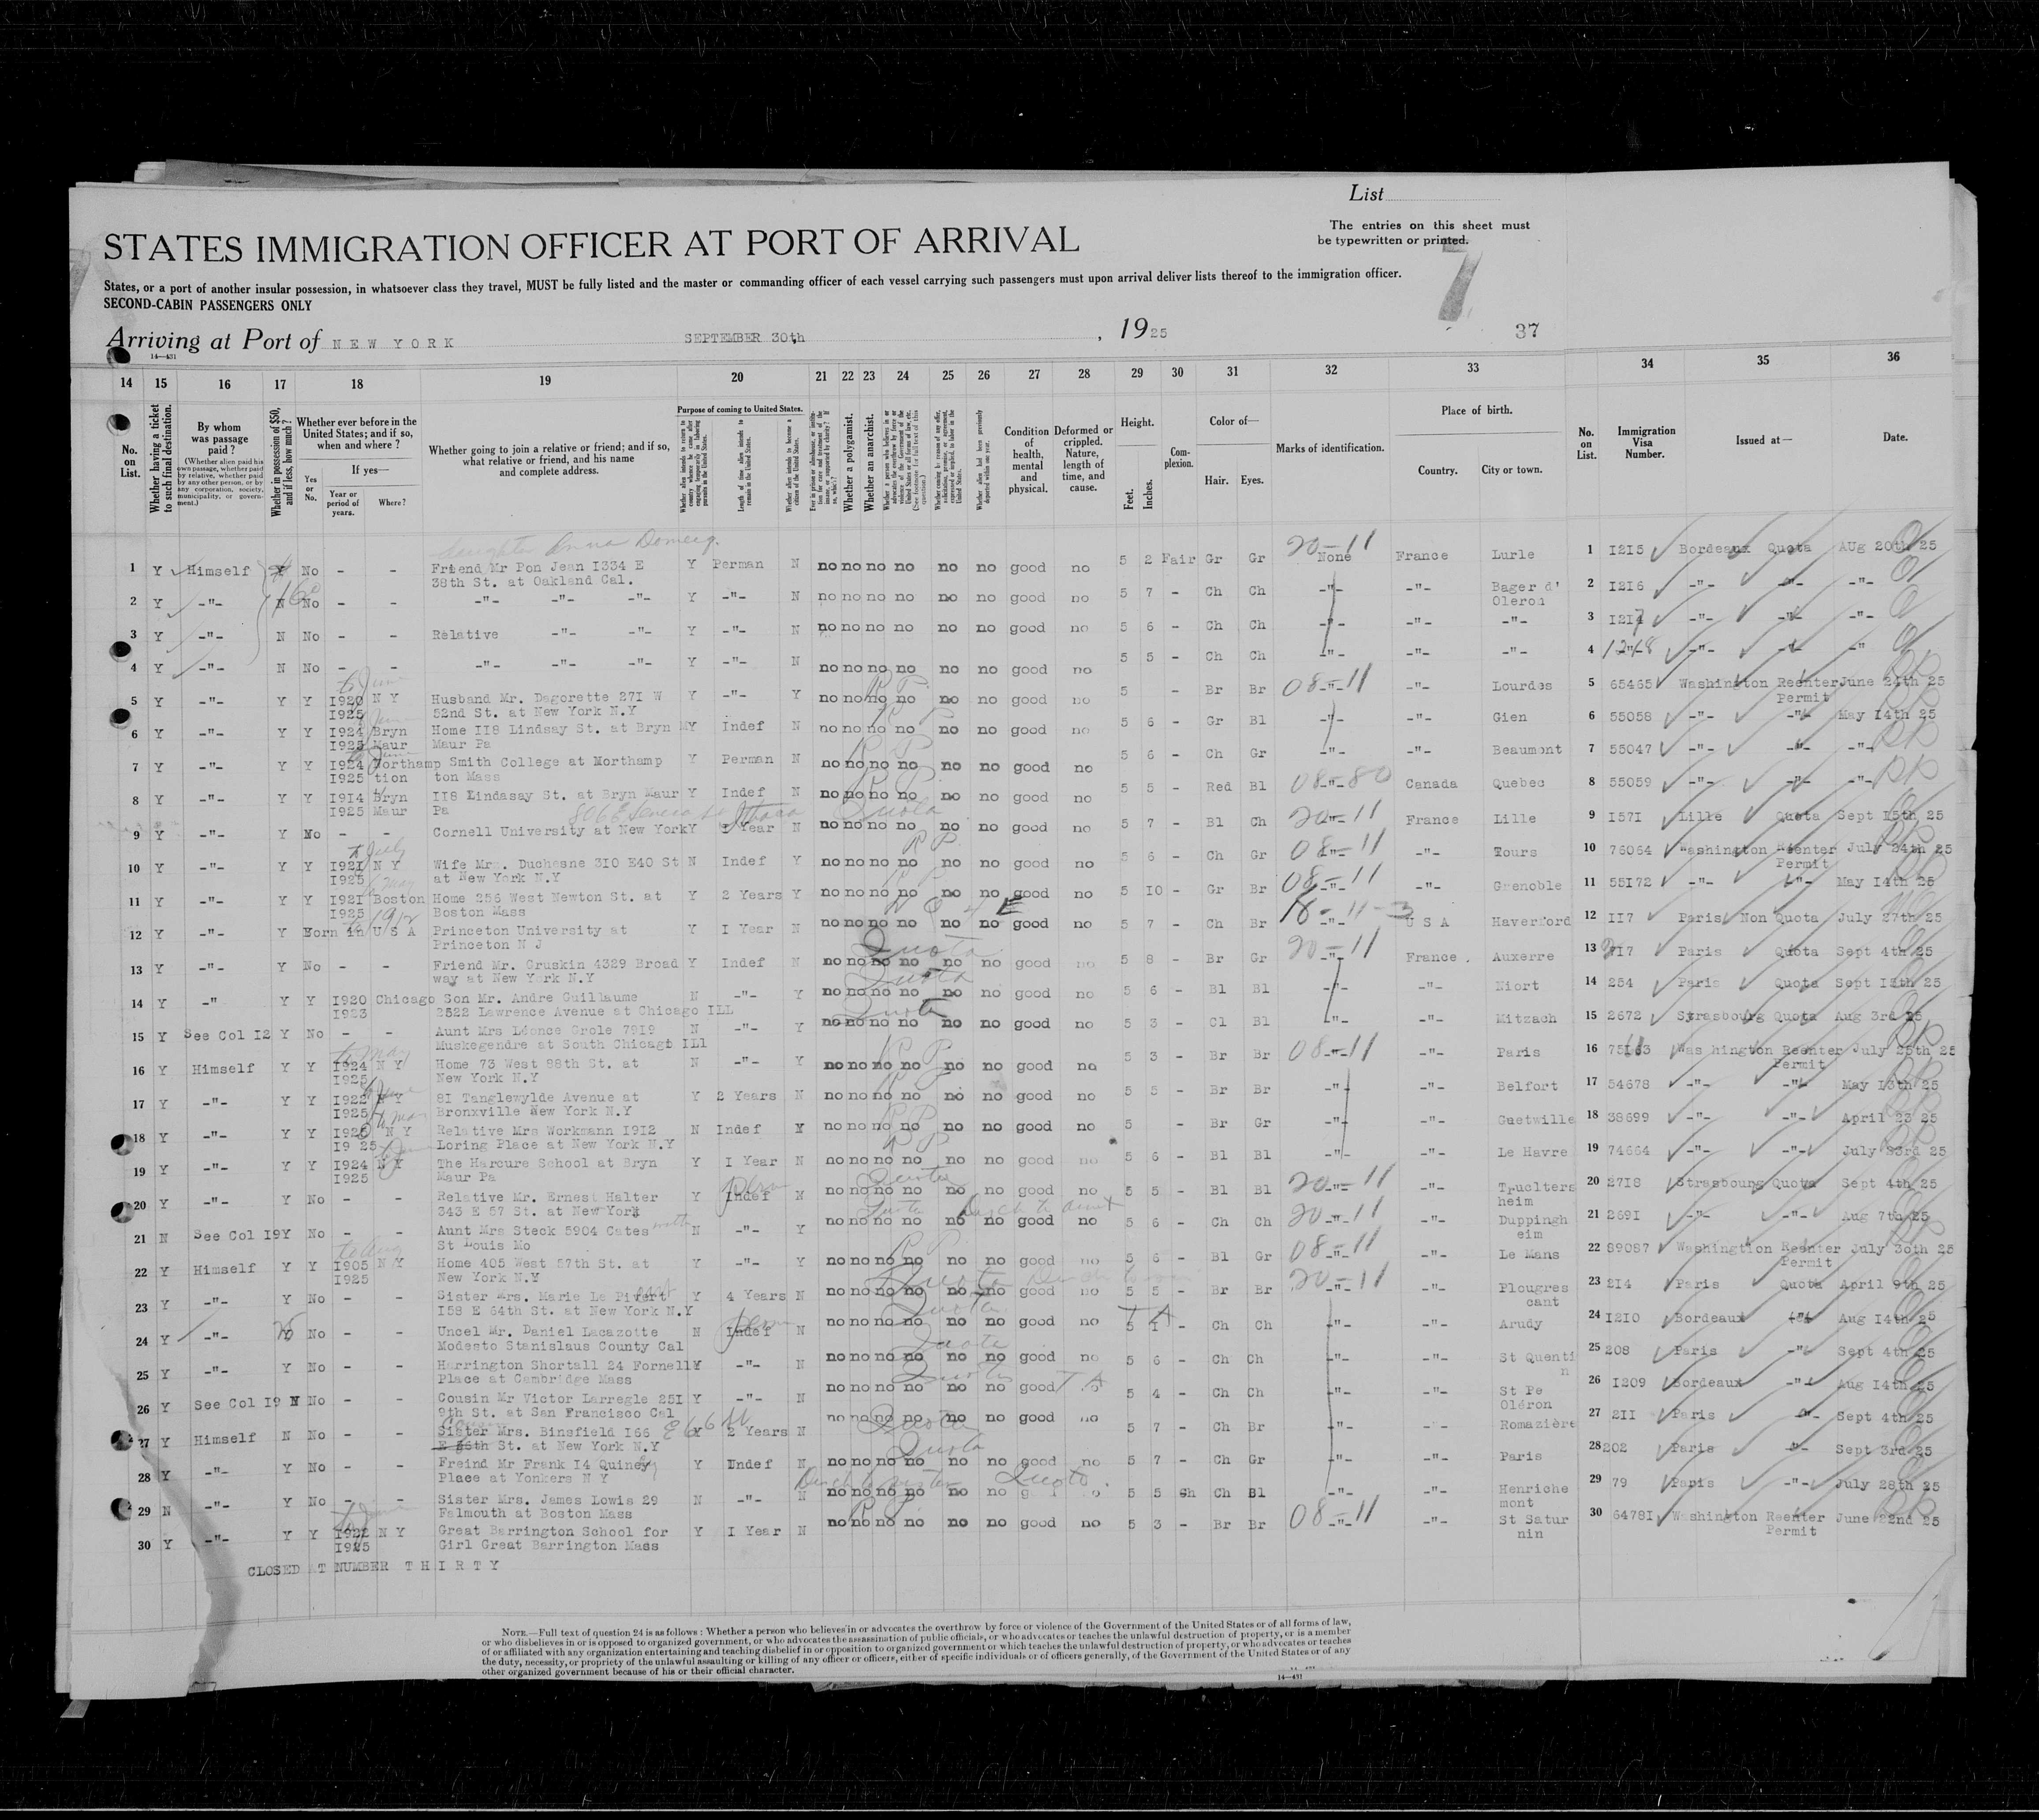 List
The entries on this sheet must
be typewritten or printed.
STATES IMMIGRATION OFFICER AT PORT OF ARRIVAL
States, or a port of another insular possession, in whatsoever class they travel, MUST be fully listed and the master or commanding officer of each vessel carrying such passengers must upon arrival deliver lists thereof to the immigration officer.
SECOND-CABIN PASSENGERS ONLY
7
Arriving at Port of NEW YORK SEPTEMBER 30th, 1925 37
14—431
14 15 16 17 18 19 20 21 22 23 24 25 26 27 28 29 30 31 32 33 34 35 36
No. on List.
Whether having a ticket to such final destination.
By whom was passage paid?
(Whether alien paid his own passage, whether paid by relative, whether paid by any other person, or by any corporation, society, municipality, or government.)
Whether in possession of $50, and if less, how much?
Whether ever before in the United States; and if so, when and where?
If yes—
Yes or No.
Year or period of years.
Where?
Whether going to join a relative or friend; and if so, what relative or friend, and his name and complete address.
Purpose of coming to United States.
Length of time alien intends to remain in the United States.
Whether alien intends to become a citizen of the United States.
Whether a polygamist.
Whether an anarchist.
Condition of health, mental and physical.
Deformed or crippled. Nature, length of time, and cause.
Height.
Feet.
Inches.
Complexion.
Color of—
Hair. Eyes.
Marks of identification.
Place of birth.
Country. City or town.
No. on List.
Immigration Visa Number.
Issued at—
Date.
daughter Anna Domecq.
1 Y Himself Y No - - Friend Mr Pon Jean I334 E Y Perman N no no no no no no good no 5 2 Fair Gr Gr 20-11 None France Lurle 1 I2I5 Bordeaux Quota AUg 20th 25
38th St. at Oakland Cal.
2 Y -"- N No - - -"- -"- -"- Y -"- N no no no no no no good no 5 7 - Ch Ch -"- -"- Bager d' 2 I2I6 -"- -"- -"-
Oleron
3 Y -"- N No - - Relative -"- -"- Y -"- N no no no no no no good no 5 6 - Ch Ch -"- -"- -"- 3 I2I7 -"- -"- -"-
4 Y -"- N No - - -"- -"- -"- Y -"- N no no no no no no good no 5 5 - Ch Ch -"- -"- -"- 4 1218 -"- -"- -"
5 Y -"- Y Y I920 N Y Husband Mr. Dagorette 27I W Y -"- Y no no no no no no good no 5 - Br Br 08-11 -"- Lourdes 5 65465 Washington Reenter June 24th 25
I925 52nd St. at New York N.Y Permit
6 Y -"- Y Y I924 Bryn Home II8 Lindsay St. at Bryn M Y Indef N no no no no no no good no 5 6 - Gr Bl -"- -"- Gien 6 55058 -"- -"- May I4th 25
I925 Maur Maur Pa
7 Y -"- Y Y I924 Northamp Smith College at Northamp Y Perman N no no no no no no good no 5 6 - Ch Gr -"- -"- Beaumont 7 55047 -"- -"- -"-
I925 tion ton Mass
8 Y -"- Y Y I9I4 Bryn II8 Lindasay St. at Bryn Maur Y Indef N no no no no no no good no 5 5 - Red Bl 08-80 Canada Quebec 8 55059 -"- -"- -"-
I925 Maur Pa
9 Y -"- Y No - - Cornell University at New York Y I Year N no no no no no no good no 5 7 - Bl Ch 20-11 France Lille 9 I57I Lille Quota Sept I5th 25
10 Y -"- Y Y I921 N Y Wife Mrs. Duchesne 3I0 E40 St N Indef Y no no no no no no good no 5 6 - Ch Gr 08-11 -"- Tours 10 76064 Washington Reenter July 24th 25
I925 at New York N.Y Permit
11 Y -"- Y Y I92I Boston Home 256 West Newton St. at Y 2 Years Y no no no no no no good no 5 I0 - Gr Br 08-11 -"- Grenoble 11 55I72 -"- -"- May I4th 25
I925 Boston Mass
12 Y -"- Y Born in U S A Princeton University at Y I Year N no no no no no no good no 5 7 - Ch Br 18-11-3 U S A Haverford 12 II7 Paris Non Quota July 27th 25
Princeton N J
13 Y -"- Y No - - Friend Mr. Gruskin 4329 Broad Y Indef N no no no no no no good no 5 8 - Br Gr 20-11 France . Auxerre 13 2I7 Paris Quota Sept 4th 25
way at New York N.Y
14 Y -" Y Y I920 Chicago Son Mr. Andre Guillaume N -"- Y no no no no no no good no 5 6 - Bl Bl -"- -"- Niort 14 254 Paris Quota
I923 2522 Lawrence Avenue at Chicago ILL
15 Y See Col I2 Y No - - Aunt Mrs Léonce Grole 79I9 N -"- Y no no no no no no good no 5 3 - Cl Bl -"- -"- Mitzach 15 2672 Strasbourg Quota Aug 3rd 25
Muskegendre at South Chicago Ill
16 Y Himself Y Y I924 N Y Home 73 West 88th St. at N -"- Y no no no no no no good no 5 3 - Br Br 08-11 -"- Paris 16 Washington Reenter July 25th 25
I925 New York N.Y Permit
17 Y -"- Y Y I922 N Y 8I Tanglewylde Avenue at Y 2 Years N no no no no no no good no 5 5 - Br Br -"- -"- Belfort 17 54678 -"- -"- May I3th 25
I925 Bronxville New York N.Y
18 Y -"- Y Y N Y Relative Mrs Workmann I9I2 N Indef Y no no no no no no good no 5 - Br Gr -"- -"- Guetwille 18 38699 -"- -"- April 23 25
I9 25 Loring Place at New York N.Y
19 Y -"- Y Y I924 N Y The Harcure School at Bryn Y I Year N no no no no no no good no 5 6 - Bl Bl -"- -"- Le Havre 19 74664 -"- -"- July
I925 Maur Pa
20 Y -"- Y No - - Relative Mr. Ernest Halter Y Indef N no no no no no no good no 5 5 - Bl Bl 20-11 -"- Truclters 20 27I8 Strasbourg Quota Sept 4th 25
343 E 57 St. at New York heim
21 N See Col I9 Y No - - Aunt Mrs Steck 5904 Cates N -"- Y no no no no no no good no 5 6 - Ch Ch 20-11 -"- Duppingh 21 269I -"- -"- Aug 7th 25
St Louis Mo eim
22 Y Himself Y Y I905 N Y Home 405 West 57th St. at Y -"- Y no no no no no no good no 5 6 - Bl Gr 08-11 -"- Le Mans 22 89087 Washington Reenter July 30th 25
I925 New York N.Y Permit
23 Y -"- Y No - - Sister Mrs. Marie Le Pivert Y 4 Years N no no no no no no good no 5 5 - Br Br 20-11 -"- Plougres 23 2I4 Paris Quota April 9th 25
I58 E 64th St. at New York N.Y cant
24 Y -"- No - - Uncel Mr. Daniel Lacazotte N Indef N no no no no no no good no 5 I - Ch Ch -"- -"- Arudy 24 I2I0 Bordeaux -"- Aug I4th 25
Modesto Stanislaus County Cal
25 Y -"- Y No - - Harrington Shortall 24 Fornell Y -"- N no no no no no no good no 5 6 - Ch Ch -"- -"- St Quenti 25 208 Paris -"- Sept 4th 25
Place at Cambridge Mass n
26 Y See Col I9 N No - - Cousin Mr Victor Larregle 25I Y -"- N no no no no no no good no 5 4 - Ch Ch -"- -"- St Pe 26 I209 Bordeaux -"- Aug I4th 25
9th St. at San Francisco Cal Oléron
27 Y Himself N No - - Sister Mrs. Binsfield I66 Y 2 Years N no no no no no no good no 5 7 - Ch Br -"- -"- Romazière 27 2II Paris -"- Sept 4th 25
E 66th St. at New York N.Y
28 Y -"- Y No - - Freind Mr Frank I4 Quincy Y Undef N no no no no no no good no 5 7 - Ch Gr -"- -"- Paris 28 202 Paris -"- Sept 3rd 25
Place at Yonkers N Y
29 N -"- Y No - - Sister Mrs. James Lowis 29 N -"- N no no no no no no good no 5 5 Ch Bl -"- -"- Henriche 29 79 Paris -"- July 28th 25
Falmouth at Boston Mass mont
30 Y -"- Y Y I922 N Y Great Barrington School for Y I Year N no no no no no no good no 5 3 - Br Br 08-11 -"- St Satur 30 6478I Washington Reenter June 22nd 25
I925 Girl Great Barrington Mass nin Permit
CLOSED AT NUMBER T H I R T Y
NOTE.—Full text of question 24 is as follows: Whether a person who believes in or advocates the overthrow by force or violence of the Government of the United States or of all forms of law,
or who disbelieves in or is opposed to organized government, or who advocates the assassination of public officials, or who advocates or teaches the unlawful destruction of property, or is a member
of or affiliated with any organization entertaining and teaching disbelief in or opposition to organized government or which teaches the unlawful destruction of property, or who advocates or teaches
the duty, necessity, or propriety of the unlawful assaulting or killing of any officer or officers, either of specific individuals or of officers generally, of the Government of the United States or of any
other organized government because of his or their official character.
14—431